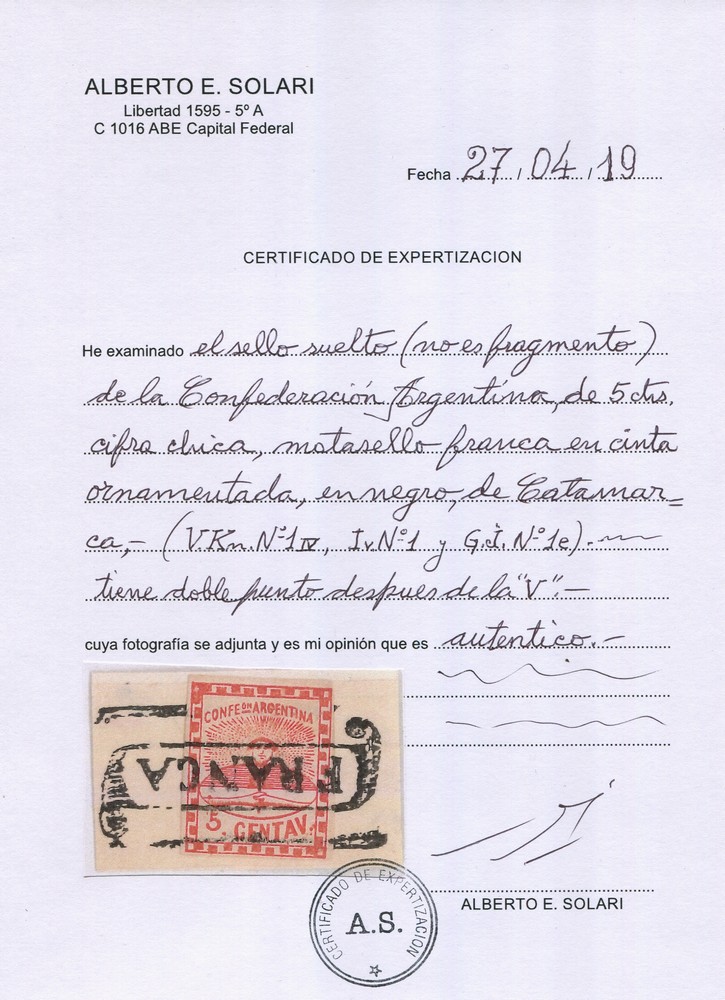 ALBERTO E. SOLARI
Libertad 1595 - 5º A
C 1016 ABE Capital Federal
Fecha 27 / 04 / 19
CERTIFICADO DE EXPERTIZACION
He examinado el sello suelto (no es fragmento)
de la Confederación Argentina, de 5 ctvs,
cifra chica, matasello franca en cinta
ornamentada, en negro, de Catamar=
ca,- (V.Kn. Nº1 IV, Iv Nº1 y G.J. Nº 1e).
tiene doble punto despues de la "V".-
cuya fotografía se adjunta y es mi opinión que es autentico.-
CONFEON ARGENTINA
FRANCA
5 CENTAV:
ALBERTO E. SOLARI
CERTIFICADO DE EXPERTIZACION
A.S.